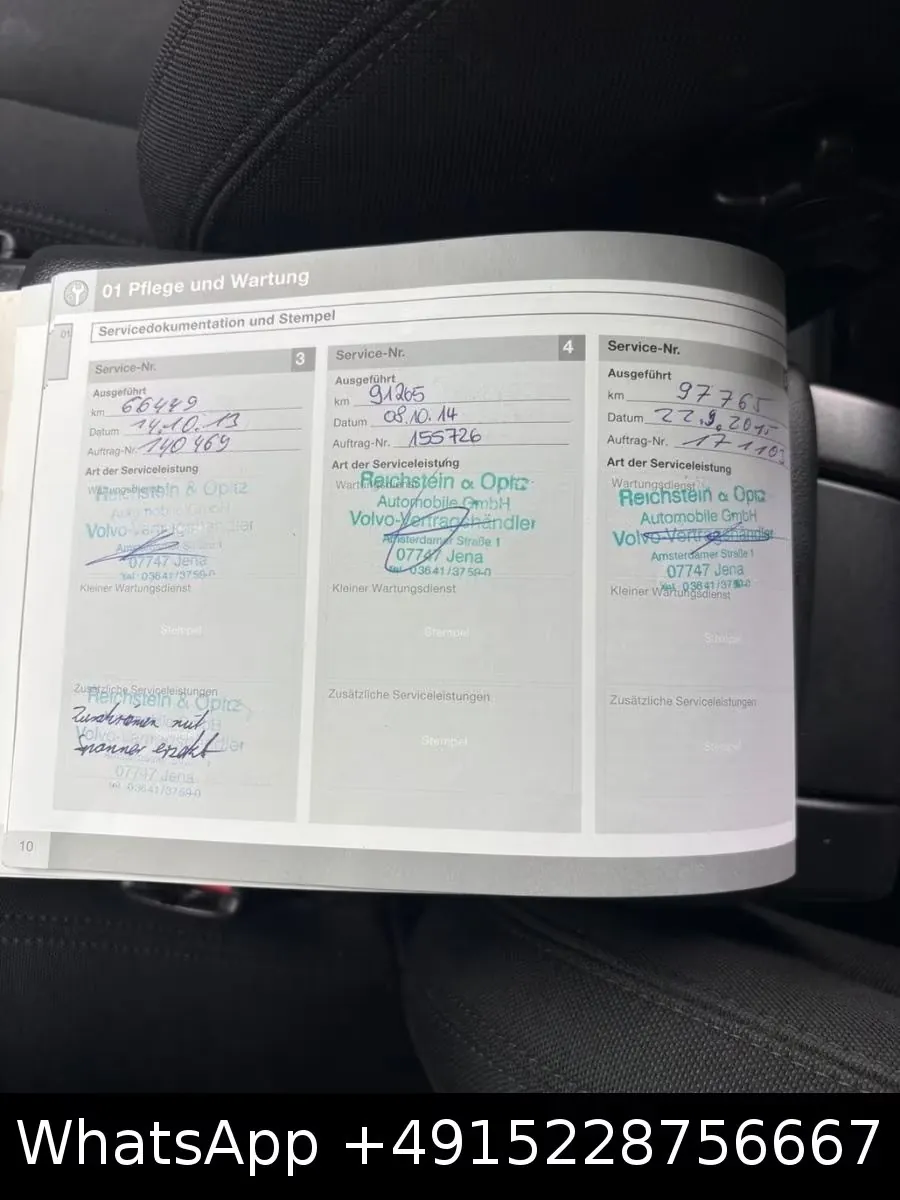 01 Pflege und Wartung
01
Servicedokumentation und Stempel
Service-Nr. 3
Ausgeführt
km 66449
Datum 14.10.13
Auftrag-Nr. 140469
Art der Serviceleistung
Wartungsdienst
Reichstein & Opitz
Automobile GmbH
Volvo-Vertragshändler
Amsterdamer Straße 1
07747 Jena
Tel. 03641/3759-0
Kleiner Wartungsdienst
Stempel
Zusätzliche Serviceleistungen
Reichstein & Opitz
Zusatzriemen mit
Spanner ersetzt
07747 Jena
Tel. 03641/3759-0
Service-Nr. 4
Ausgeführt
km 91265
Datum 08.10.14
Auftrag-Nr. 155726
Art der Serviceleistung
Wartungsdienst
Reichstein & Opitz
Automobile GmbH
Volvo-Vertragshändler
Amsterdamer Straße 1
07747 Jena
Tel. 03641/3759-0
Kleiner Wartungsdienst
Stempel
Zusätzliche Serviceleistungen
Stempel
Service-Nr.
Ausgeführt
km 97765
Datum 22.9.2015
Auftrag-Nr.
Art der Serviceleistung
Wartungsdienst
Reichstein & Opitz
Automobile GmbH
Volvo-Vertragshändler
Amsterdamer Straße 1
07747 Jena
Tel. 03641/3759-0
Kleiner Wartungsdienst
Stempel
Zusätzliche Serviceleistungen
Stempel
10
WhatsApp +4915228756667